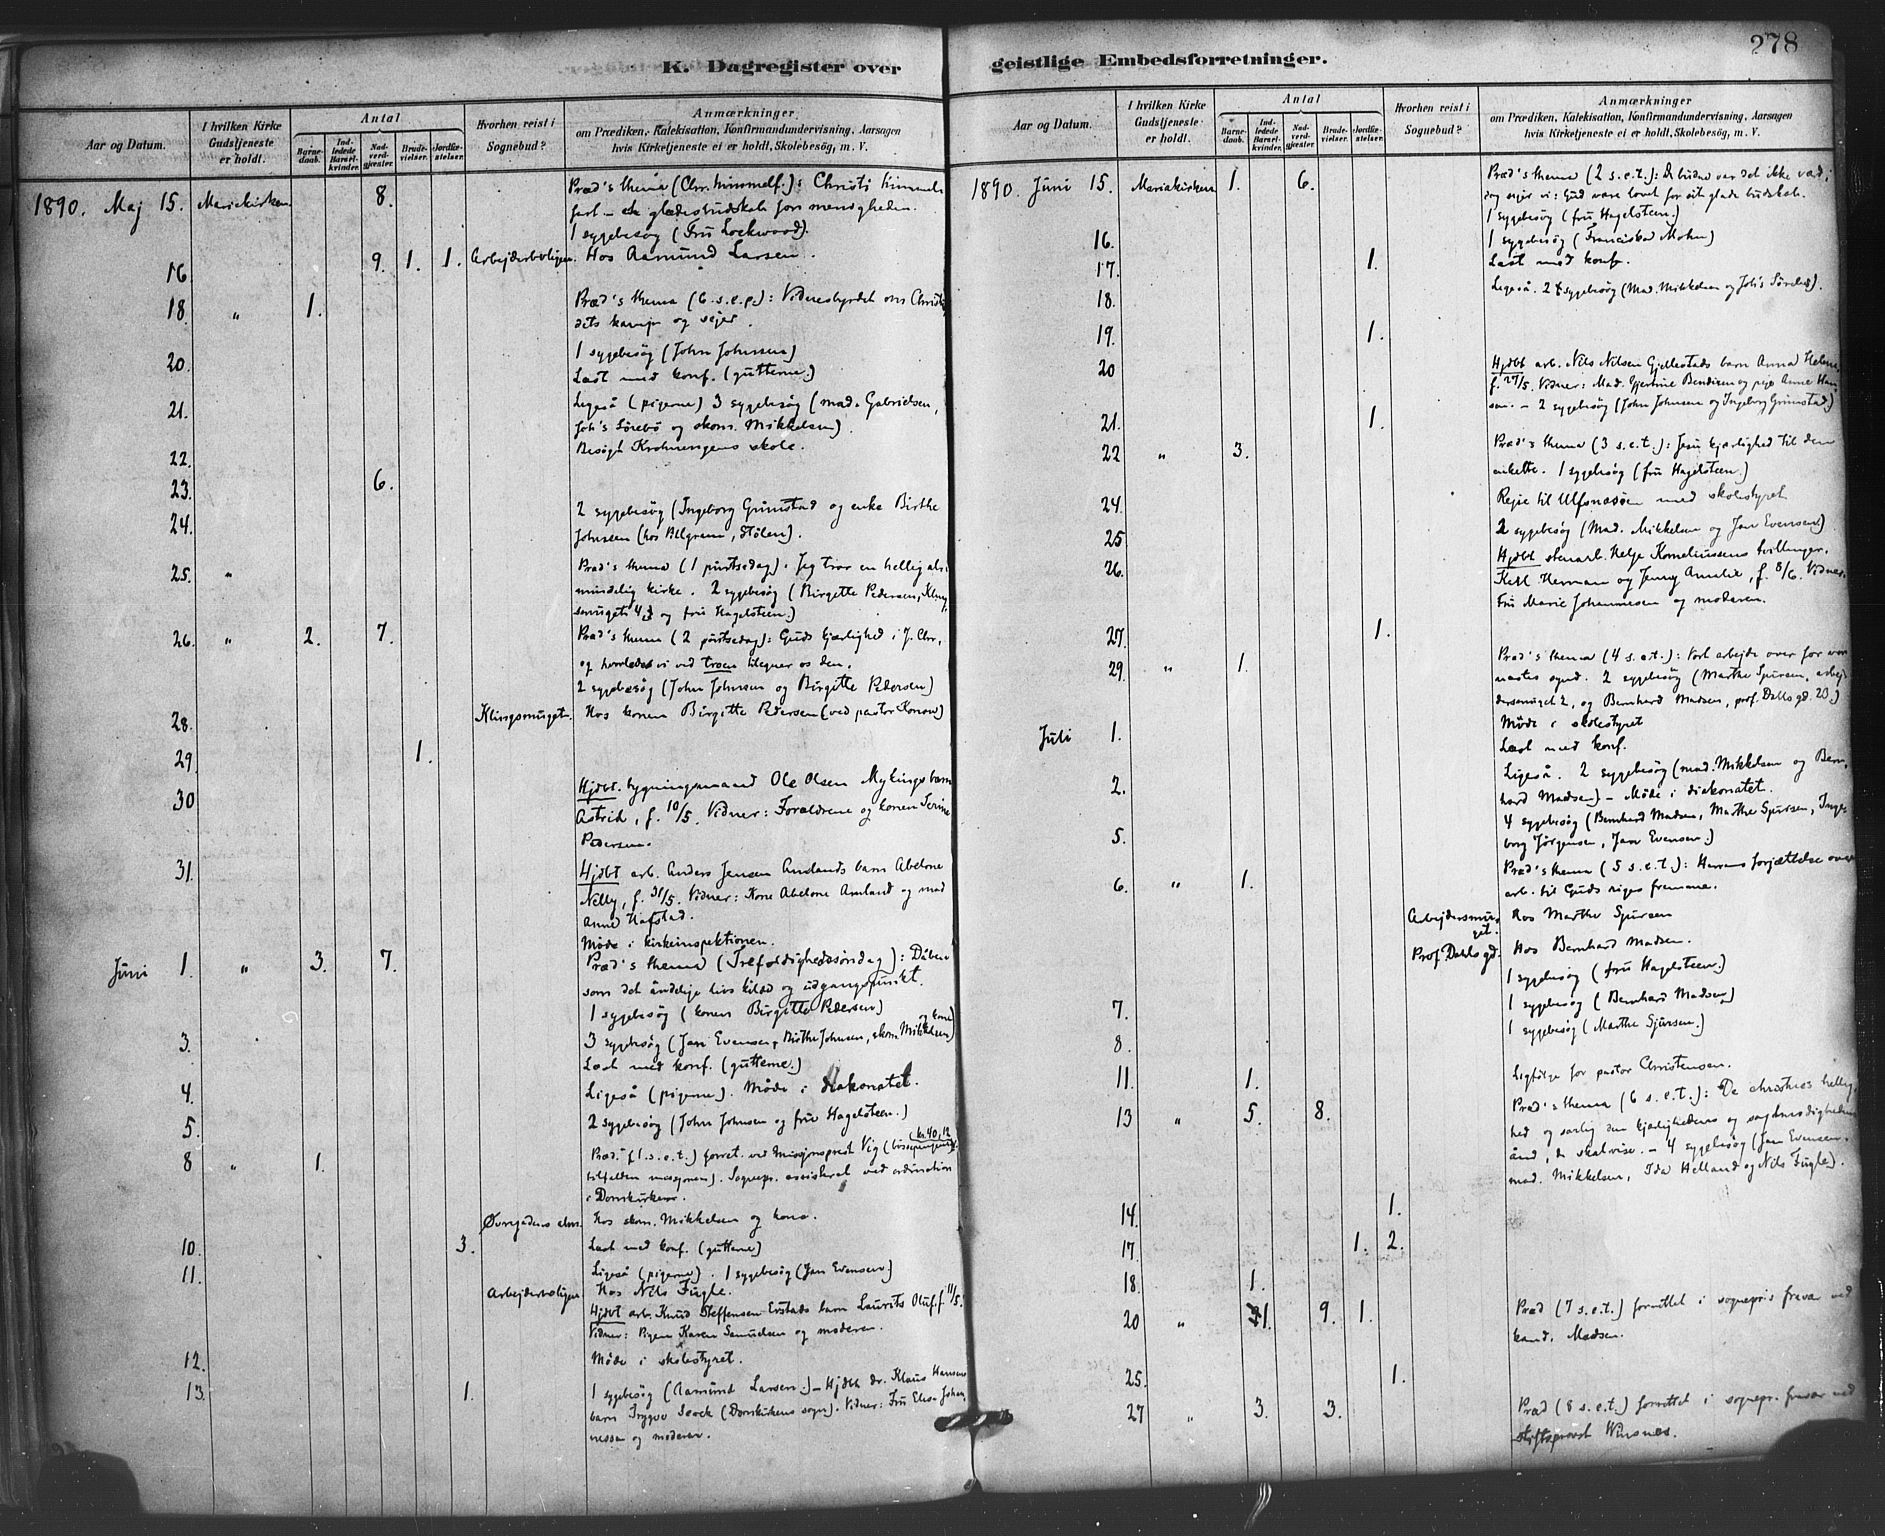 278
K. Dagregister over
Aar og Datum.
I hvilken Kirke Gudstjeneste er holdt.
Antal
Barne-daab.
Ind-ledede Barsel-kvinder.
Nad-verd-gjæster.
Brude-vielser.
Jordfæ-stelser.
Hvorhen reist i Sognebud?
Anmærkninger
om Prædiken, Katekisation, Konfirmandundervisning, Aarsagen
hvis Kirketjeneste ei er holdt, Skolebesøg, m. V.
1890. Maj 15. Mariekirken. 8. Præd's thema (Chr. himmelf.): Christi himmel-
fart – et glædesbudskab for menigheden.
1 sygebesøg (Fru Lockwood).
16. 9. 1. 1. Arbejderboligen. Hos Aamund Larsen.
18. " 1. Præd's thema (6. s. e. p.): Vidnesbyrdet om Christi,
dets kamp og sejer.
1 sygebesøg (John Johnsen)
20. Læst med konf. (gutterne.)
21. Ligeså (pigerne) 3 sygebesøg (mad. Gabrielsen,
Joh's Sörebö og skom. Mikkelsen).
22. Besøgt Krohnengens skole.
23. 6.
24. 2 sygebesøg (Ingeborg Grimstad og enke Birthe
Johnsen (hos Pllgram, Stölen).
25. " Præd's thema (1 pintsedag): Jeg tror en hellig al-
mindelig kirke. 2 sygebesøg (Birgitte Pedersen, Kling-
smuget 43 og fru Hagelsteen.)
26. " 2. 7. Præd's thema (2 pintsedag): Guds kjærlighed i J. Chr.,
og hvorledes vi ved troen tilegner os den.
2 sygebesøg (John Johnsen og Birgitte Pedersen)
28. Klingsmuget. Hos konen Birgitte Pedersen (ved pastor Konow)
29. 1.
30 Hjdbt. bygningsmand Ole Olsen Myklings barn
Astrid, f. 10/5. Vidner: Forældrene og konen Serine
Pedersen.
31. Hjdbt arb. Anders Jensen Amlands barn Abelone
Nelly, f. 31/5. Vidner: Kone Abelone Amland og mad
Anne Hafstad.
Møde i kirkeinspektionen.
Juni 1. " 3. 7. Præd's thema (Trefoldighedssøndag): Dåben
som det åndelige livs kilde og udgangspunkt.
1 sygebesøg (konen Birgitte Pedersen)
3. 3 sygebesøg (Jan Evensen, Birthe Johnsen, skom. Mikkelsen og kone)
Læst med konf. (gutterne.)
4. Ligeså (pigerne). Møde i diakonatet.
5. 2 sygebesøg (John Johnsen og fru Hagelsteen.)
8 " 1. Præd. (1. s. e. t.) forret. ved missionsprest Vig (bøssepengene (kr. 40,12)
tilfaldten missionen). Sognepr. assisteret ved ordination
i Domkirken.
Øvregadens alm. Hos skom. Mikkelsen og kone.
10. 3. Læst med konf. (gutterne)
11. Ligeså (pigerne). 1 sygebesøg (Jan Evensen)
Arbejderboligen Hos Nils Fugle.
Hjdbt arb. Knud Steffensen Evstads barn Laurits Oluf, f. 11/5.
Vidner: Pigen Karen Samuelsen og moderen.
12. Møde i skolestyret.
13. 1. 1 sygebesøg (Aamund Larsen.) – Hjdbt dr. Klaus Hansens
barn Trygve (Domkirkens sogn). Vidner: Fru Elisa Johan-
nessen og moderen.
geistlige Embedsforretninger.
Aar og Datum.
I hvilken Kirke Gudstjeneste er holdt.
Antal
Barne-daab.
Ind-ledede Barsel-kvinder.
Nad-verd-gjæster.
Brude-vielser.
Jordfæ-stelser.
Hvorhen reist i Sognebud?
Anmærkninger
om Prædiken, Katekisation, Konfirmandundervisning, Aarsagen
hvis Kirketjeneste ei er holdt, Skolebesøg, m. V.
1890. Juni 15. Mariakirken 1. 6. Præd's thema (2 s. e. t.): De budne var det ikke værd;
dog siger vi: Gud være lovet for sit glade budskab.
1 sygebesøg (fru Hagelsteen.)
16. 1 sygebesøg (Franciska Mohn)
17. 1. Læst med konf.
18. Ligeså. 2 sygebesøg (Mad. Mikkelsen og Joh's Sörebö).
19. 1.
20 Hjdbt arb. Nils Nilsen Gjellestads barn Anna Helene,
f. 27/5. Vidner: Mad. Gjertine Bendixen og pige Anne Han-
sen. – 2 sygebesøg (John Johnsen og Ingeborg Grimstad)
21. 1.
22 " 3. Præd's thema (3 s. e. t.): Jesu kjærlighed til den
enkelte. 1 sygebesøg (fru Hagelsteen.)
24. Rejse til Ulfsnesøen med skolestyret
25 2 sygebesøg (Mad. Mikkelsen og Jan Evensen)
26. Hjdbt stenarb. Helje Korneliussens tvillinger.
Karl Herman og Jenny Amalie, f. 8/6. Vidner.
Fru Marie Johannesen og moderen.
27. 1.
29. " 1. Præd's thema (4 s. e. t.): Vort arbejde over for vor
næstes synd. 2 sygebesøg (Marthe Sjursen, arbej-
dersmuget 2, og Bernhard Madsen, prof. Dahls gd. 20.)
Møde i skolestyret
Juli 1. Læst med konf.
2. Ligeså. 2 sygebesøg (mad. Mikkelsen og Bern-
hard Madsen) – Møde i diakonatet.
5. 4 sygebesøg (Bernhard Madsen, Marthe Sjursen, Inge-
borg Jørgensen, Jan Evensen.)
6. " 1. Præd's thema (5 s. e. t.): Herrens forjættelse over
arb. til Guds riges fremme.
Arbejdersmu-
get. Hos Marthe Sjursen
Prof. Dahls gd. Hos Bernhard Madsen.
1 sygebesøg (fru Hagelsteen.)
7. 1 sygebesøg (Bernhard Madsen)
8. 1 sygebesøg (Marthe Sjursen.)
11. 1. Ligfølge for pastor Christensen.
13 " 5. 8. Præd's thema (6 s. e. t.): De christnes hellig-
hed og særlig den kjærlighedens og sagtmodighedens
ånd, de skal vise. – 4 sygebesøg (Jan Evensen,
mad. Mikkelsen, Ida Helland og Nils Fugle).
14. 1.
17. 1. 2.
18 1.
20 " 1. 9. 1. Præd (7 s. e. t.) forrettet i sognepr's fravær ved
kand. Madsen.
25. 1.
27 " 3. 3. Præd (8 s. e. t.) forrettet i sognepr. fravær ved
stiftsprovst Wirsnes.